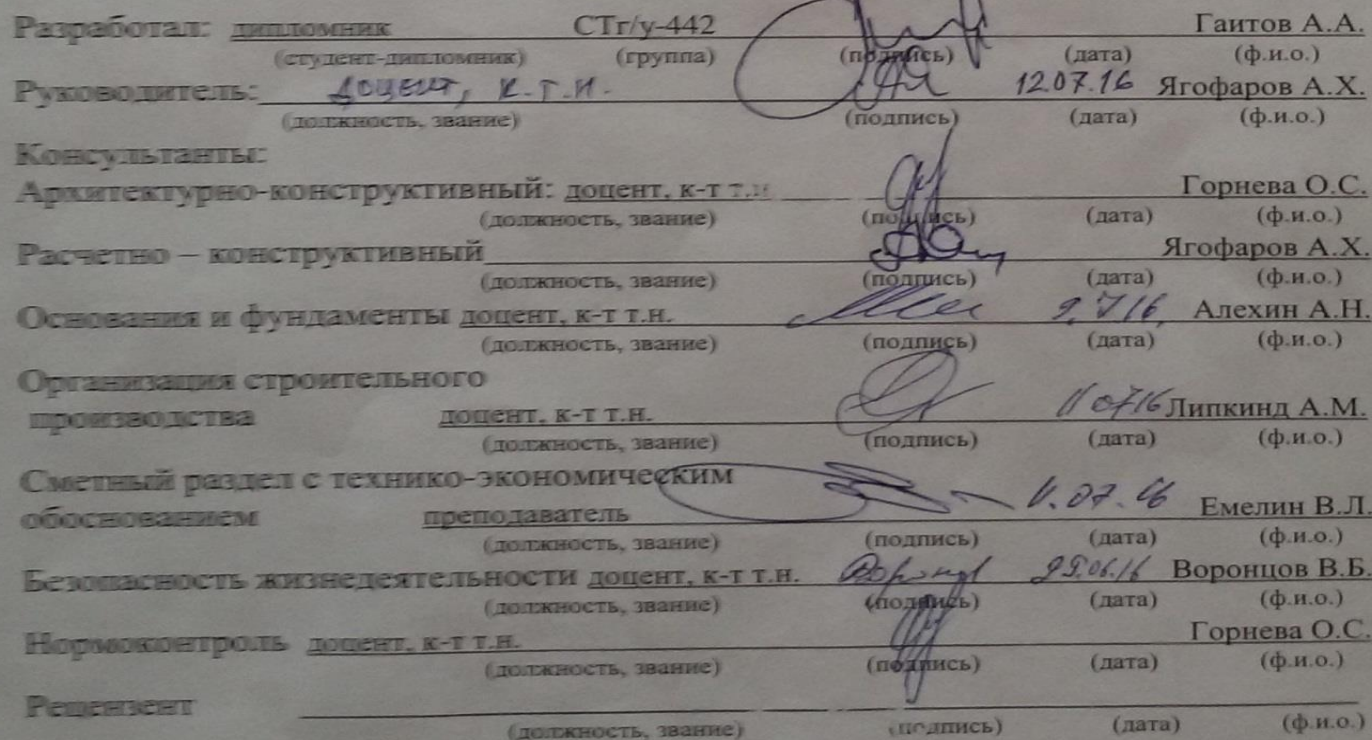 Разработал: дипломник СТг/у-442 Гаитов А.А.
(студент-дипломник) (группа) (подпись) (дата) (ф.и.о.)
Руководитель: доцент, к.т.н. 12.07.16 Ягофаров А.Х.
(должность, звание) (подпись) (дата) (ф.и.о.)
Консультанты:
Архитектурно-конструктивный: доцент, к-т т.н. Горнева О.С.
(должность, звание) (подпись) (дата) (ф.и.о.)
Расчетно – конструктивный Ягофаров А.Х.
(должность, звание) (подпись) (дата) (ф.и.о.)
Основания и фундаменты доцент, к-т т.н. Алехин А.Н.
(должность, звание) (подпись) (дата) (ф.и.о.)
Организация строительного
производства доцент, к-т т.н. Липкинд А.М.
(должность, звание) (подпись) (дата) (ф.и.о.)
Сметный раздел с технико-экономическим
обоснованием преподаватель Емелин В.Л.
(должность, звание) (подпись) (дата) (ф.и.о.)
Безопасность жизнедеятельности доцент, к-т т.н. Воронцов В.Б.
(должность, звание) (подпись) (дата) (ф.и.о.)
Нормоконтроль доцент, к-т т.н. Горнева О.С
(должность, звание) (подпись) (дата) (ф.и.о.)
Рецензент
(должность, звание) (подпись) (дата) (ф.и.о.)